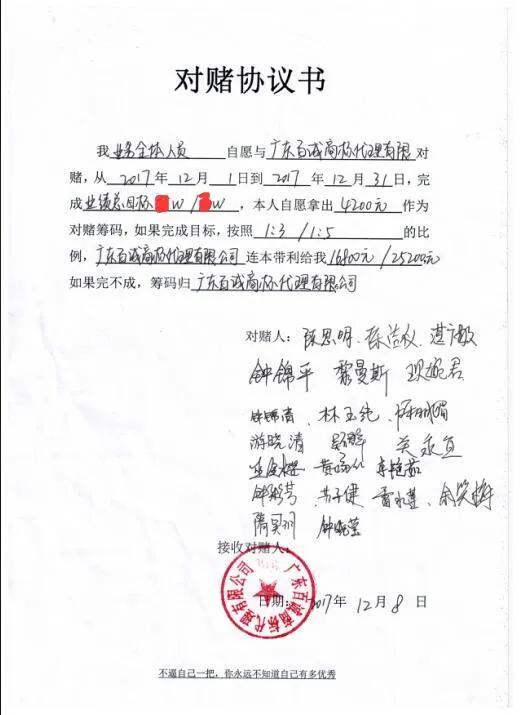 对赌协议书
我 业务全体人员 自愿与广东百诚商标代理有限 对
赌,从 2017 年 12 月 1 日到 2017 年 12 月 31 日,完
成业绩总目标 W / W ,本人自愿拿出 4200元 作为
对赌筹码,如果完成目标,按照 1:3 / 1:5 的比
例,广东百诚商标代理有限公司 连本带利给我 16800元 / 25200元
如果完不成,筹码归 广东百诚商标代理有限公司
对赌人:
钟锦平 黎曼斯
林玉纯
游晓清 关永宜
钟晓莹
接收对赌人:
广东百诚商标代理有限公司
日期: 2017年 12月 8 日
不逼自己一把,你永远不知道自己有多优秀